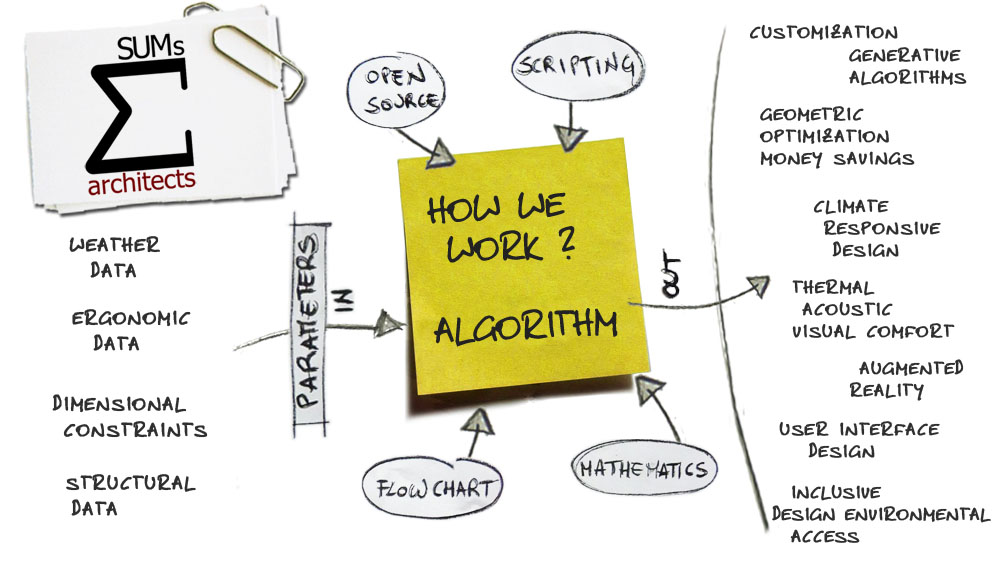 SUMs
architects
WEATHER
DATA
ERGONOMIC
DATA
DIMENSIONAL
CONSTRAINTS
STRUCTURAL
DATA
PARAMETERS
IN
OPEN
SOURCE
SCRIPTING
HOW WE
WORK ?
ALGORITHM
FLOW CHART
MATHEMATICS
OUT
CUSTOMIZATION
GENERATIVE
ALGORITHMS
GEOMETRIC
OPTIMIZATION
MONEY SAVINGS
CLIMATE
RESPONSIVE
DESIGN
THERMAL
ACOUSTIC
VISUAL COMFORT
AUGMENTED
REALITY
USER INTERFACE
DESIGN
INCLUSIVE
DESIGN ENVIRONMENTAL
ACCESS